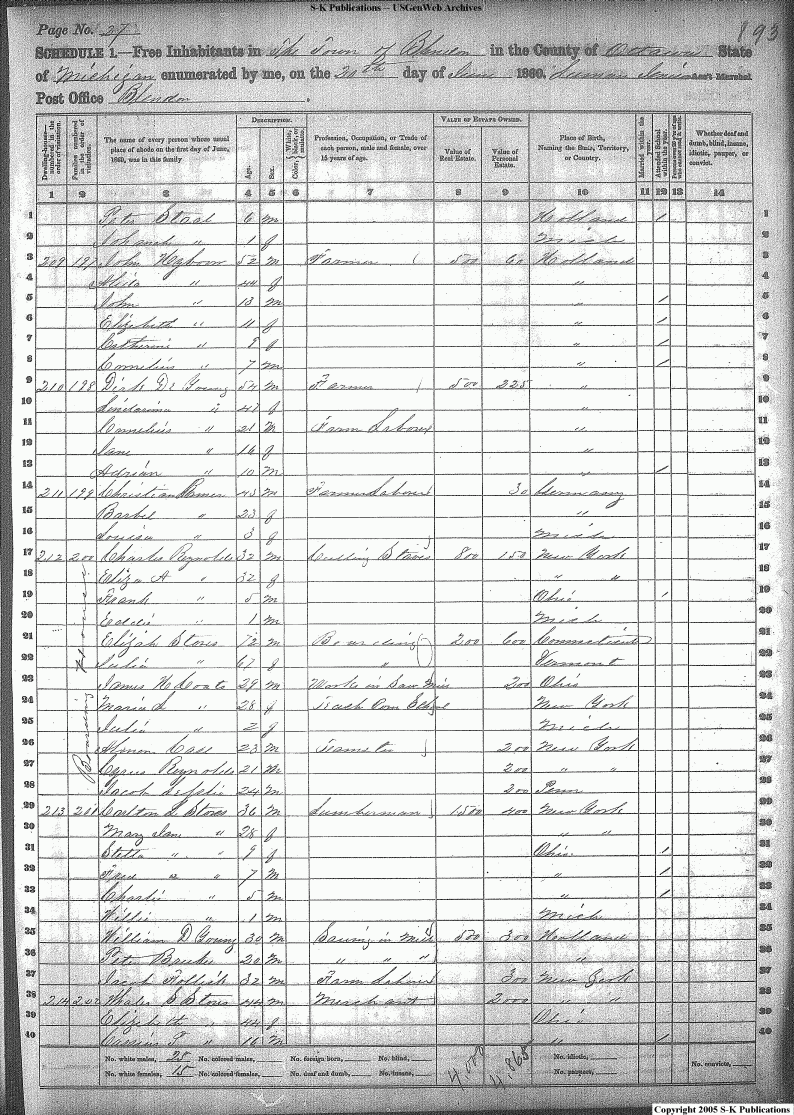 S-K Publications -- USGenWeb Archives
Page No. 27
193
SCHEDULE 1.—Free Inhabitants in The Town of Blendon in the County of Ottawa State
of Michigan enumerated by me, on the 20th day of June 1860. Ass't Marshal
Post Office Blendon.
Dwelling-houses—numbered in the order of visitation.
Families numbered in the order of visitation.
The name of every person whose usual place of abode on the first day of June, 1860, was in this family
DESCRIPTION.
Age.
Sex.
Color, {White, black, or mulatto.
Profession, Occupation, or Trade of each person, male and female, over 15 years of age.
VALUE OF ESTATE OWNED.
Value of Real Estate.
Value of Personal Estate.
Place of Birth, Naming the State, Territory, or Country.
Married within the year.
Attended School within the year.
Whether deaf and dumb, blind, insane, idiotic, pauper, or convict.
1 2 3 4 5 6 7 8 9 10 11 12 13 14
1 Peter 6 m Holland / 1
2 " 1 f Mich 2
3 209 197 John 52 m Farmer 500 60 Holland 3
4 " 44 f " 4
5 John " 13 m " / 5
6 Elizabeth " 11 f " / 6
7 Catherine " 9 f " / 7
8 Cornelius " 7 m " / 8
9 210 198 Dirk De Young 54 m Farmer 500 225 " 9
10 " 47 f " 10
11 Cornelius " 21 m Farm Laborer " 11
12 Jane " 16 f " 12
13 Adrian " 10 m " / 13
14 211 199 Christian 43 m Farm Laborer 30 Germany 14
15 " 23 f " 15
16 Louisa " 3 f Mich 16
17 212 200 Charles Reynolds 32 m Cutting Staves 800 150 New York 17
18 Eliza A " 32 f " " 18
19 Frank " 5 m Ohio / 19
20 Eddie " 1 m Mich 20
21 Elijah Stores 72 m Boarding 200 600 Connecticut 21
22 Julia " 67 f " Vermont 22
23 James H Coats 29 m Works in Saw Mill 200 Ohio 23
24 Maria " 28 f Teach Com School New York 24
25 Julia " 2 f Mich 25
26 Almon Cass 23 m Teamster 200 New York 26
27 Cyrus Reynolds 21 m 200 " " 27
28 Jacob 24 m 200 Penn 28
Boarding House
29 213 201 Carlton L Stores 36 m Lumberman 1500 400 New York 29
30 Mary Jane " 28 f " " 30
31 Stella " 9 f Ohio / 31
32 Fred " 7 m " / 32
33 Charlie " 5 m " / 33
34 Willie " 1 m Mich 34
35 William D Young 30 m Sawing in Mill 500 300 Holland 35
36 Peter 20 m " " " " 36
37 Jacob 32 m Farm Laborer 300 New York 37
38 214 202 Stores 44 m Merchant 2000 " " 38
39 Elizabeth " 44 f Ohio 39
40 " 16 m " / 40
No. white males, 25 No. colored males, No. foreign born, No. blind, No. idiotic, No. convicts,
No. white females, 15 No. colored females, No. deaf and dumb, No. insane, No. paupers,
4,000 4,865
Copyright 2005 S-K Publications